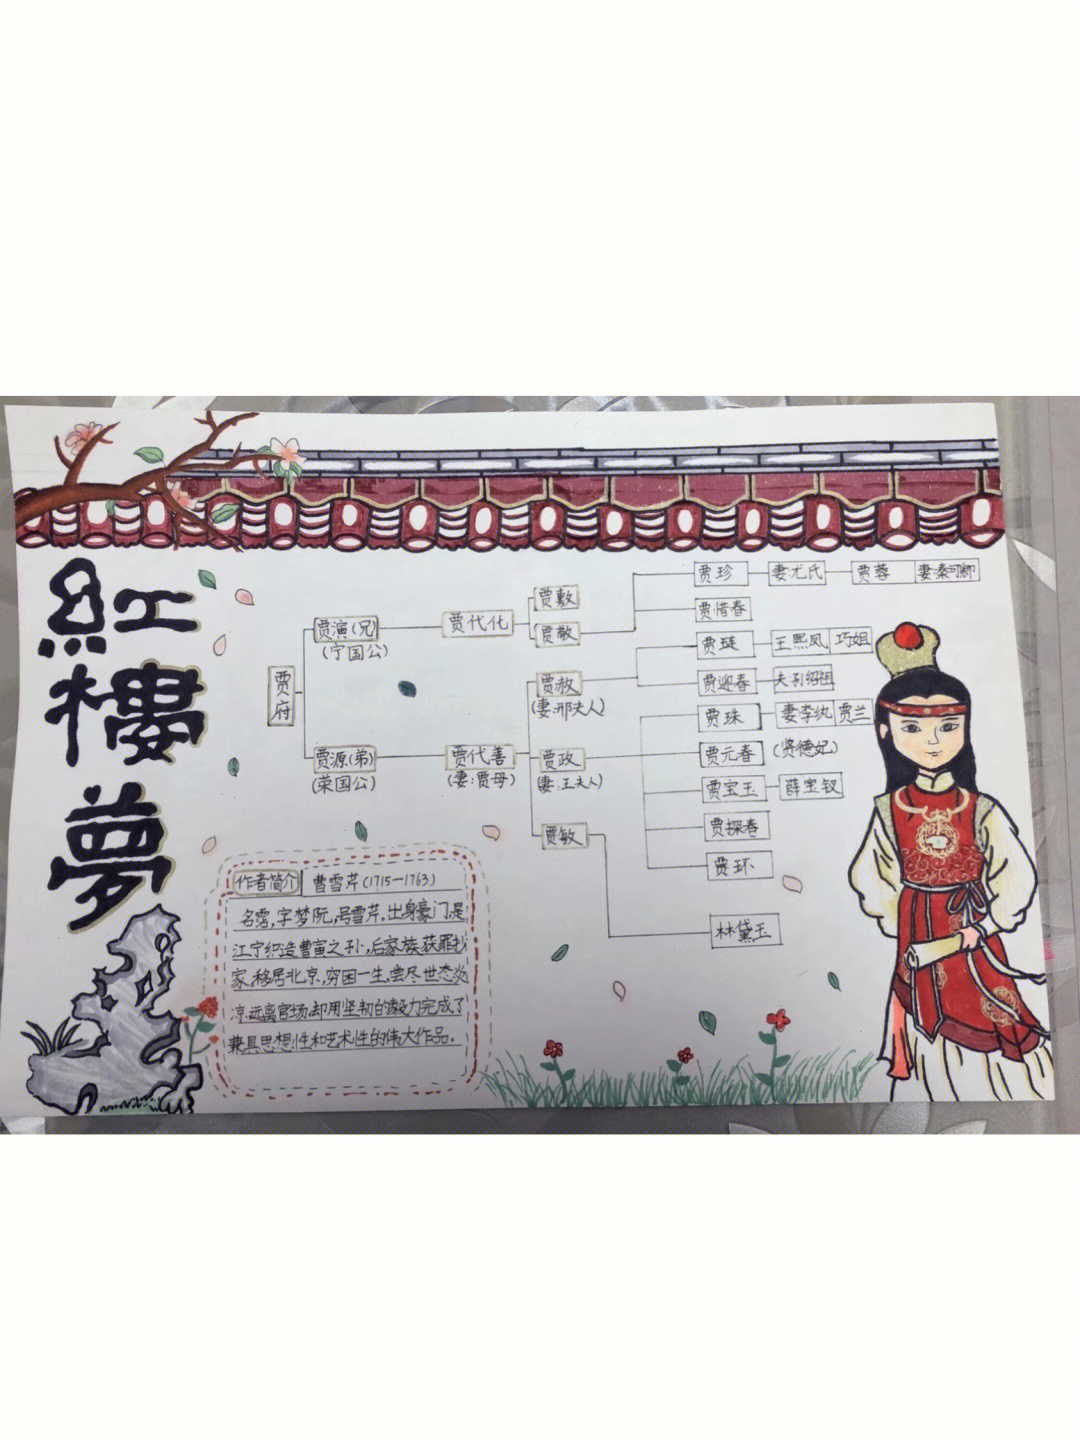 紅樓夢
贾府
贾演(兄)
(宁国公)
贾代化
贾敷
贾敬
贾珍 妻尤氏 贾蓉 妻:秦可卿
贾惜春
贾源(弟)
(荣国公)
贾代善
(妻:贾母)
贾赦
(妻:邢夫人)
贾琏 王熙凤 巧姐
贾迎春 夫孙绍祖
贾政
(妻:王夫人)
贾珠 妻李纨 贾兰
贾元春 (贤德妃)
贾宝玉 薛宝钗
贾探春
贾环
贾敏
林黛玉
作者简介 曹雪芹(1715—1763)
名霑,字梦阮,号雪芹。出身豪门,是
江宁织造曹寅之孙,后家族获罪抄
家,移居北京,穷困一生,尝尽世态炎
凉,远离官场,却用坚韧的毅力完成了
兼具思想性和艺术性的伟大作品。